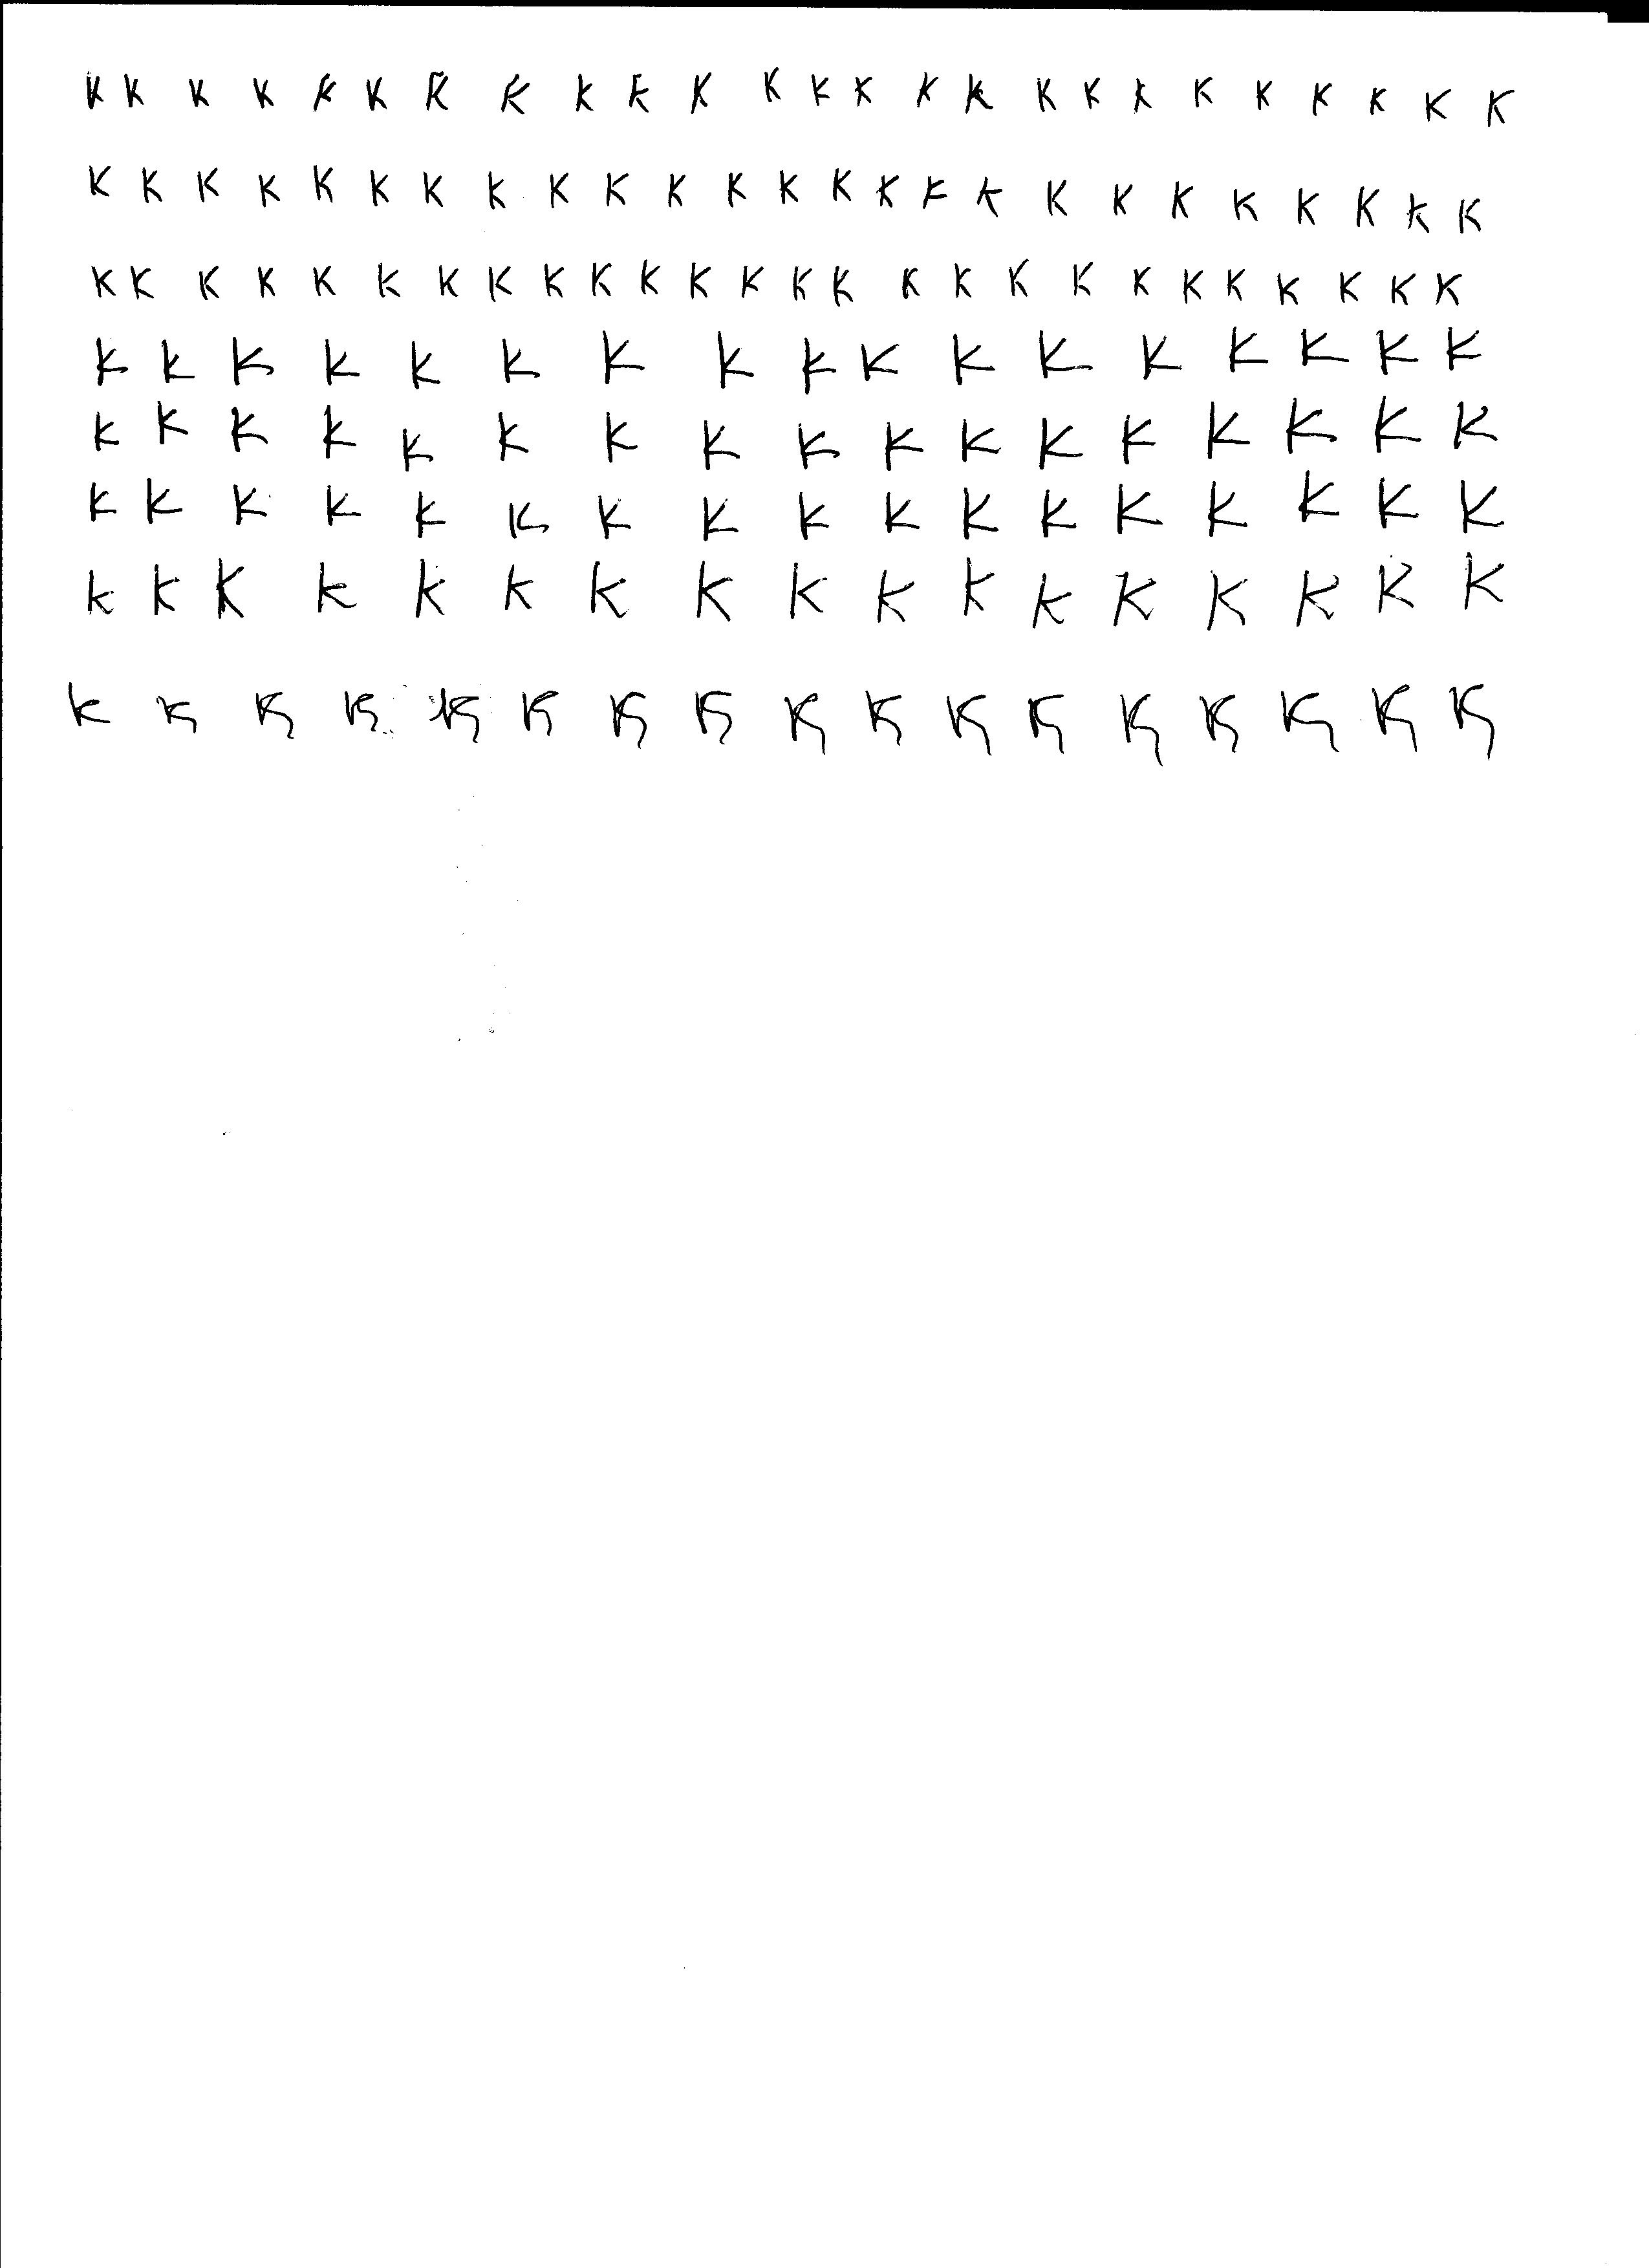 K K K K K K K K K K K K K K K K K K K K K K K K K
K K K K K K K K K K K K K K K K K K K K K K K K K
K K K K K K K K K K K K K K K K K K K K K K K K K K
K K K K K K K K K K K K K K K K K
K K K K K K K K K K K K K K K K K
K K K K K K K K K K K K K K K K K
K K K K K K K K K K K K K K K K K
K K K K K K K K K K K K K K K K K